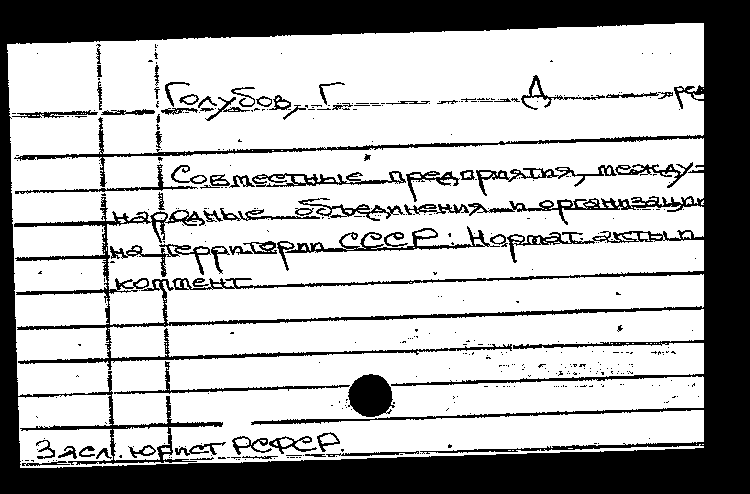 Голубов, Г Д ред
Совместные предприятия, между-
народные объединения и организации
на территории СССР: Нормат. акты и
коммент
Засл. юрист РСФСР.